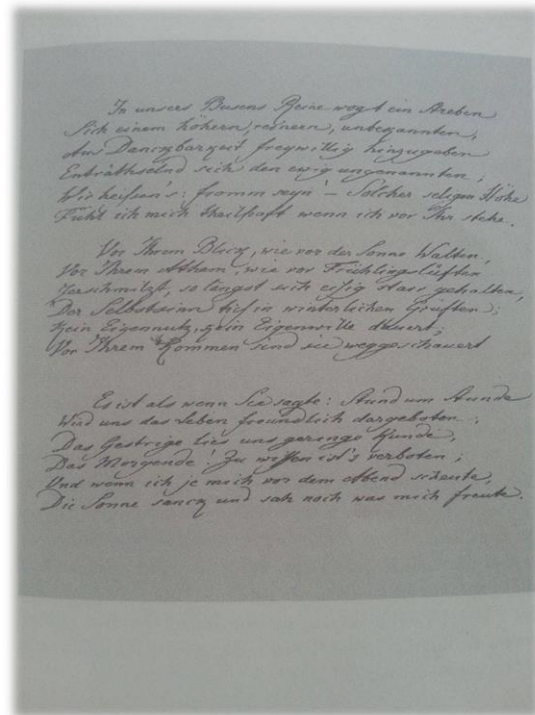 In unsers Busens Reine wogt ein Streben
Sich einem höhern, reinern, unbekannten,
Aus Danckbarkeit freywillig hinzugeben
Enträthselnd sich den ewig ungenannten;
Wir heißen's: fromm seyn! – Solcher seligen Höhe
Fühl ich mich theilhaft wenn ich vor Ihr stehe.
Vor Ihrem Blick, wie vor der Sonne Walten,
Vor Ihrem Athem, wie vor Frühlingslüften
Zerschmilzt, so längst sich eisig starr gehalten,
Der Selbstsinn tief in winterlichen Grüften;
Kein Eigennutz, kein Eigenwille dauert,
Vor Ihrem Kommen sind sie weggeschauert
Es ist als wenn Sie sagte: Stund um Stunde
Wird uns das Leben freundlich dargeboten,
Das Gestrige lies uns geringe Kunde,
Das Morgende! Zu wissen ist's verboten;
Und wenn ich je mich vor dem Abend scheute,
Die Sonne sanck und sah noch was mich freute.